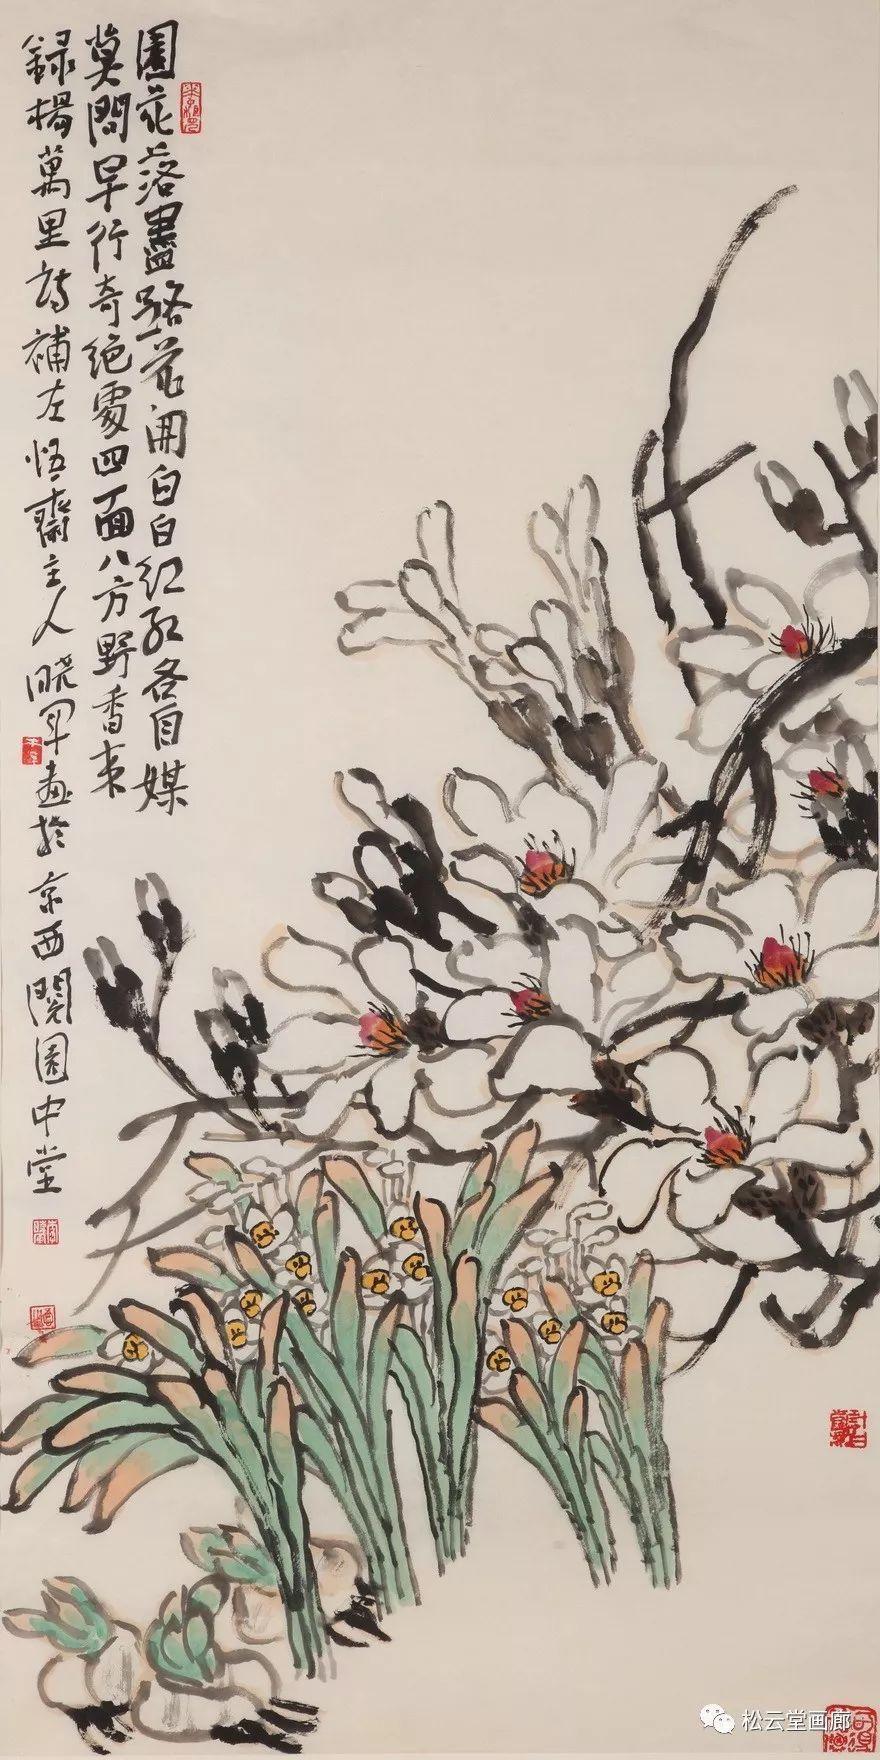 園花落盡路花開白白紅紅各自媒
莫問早行奇絕處四面八方野香來
錄楊萬里詩補左悟齋主人曉軍畫於京西閱園中堂
松云堂画廊